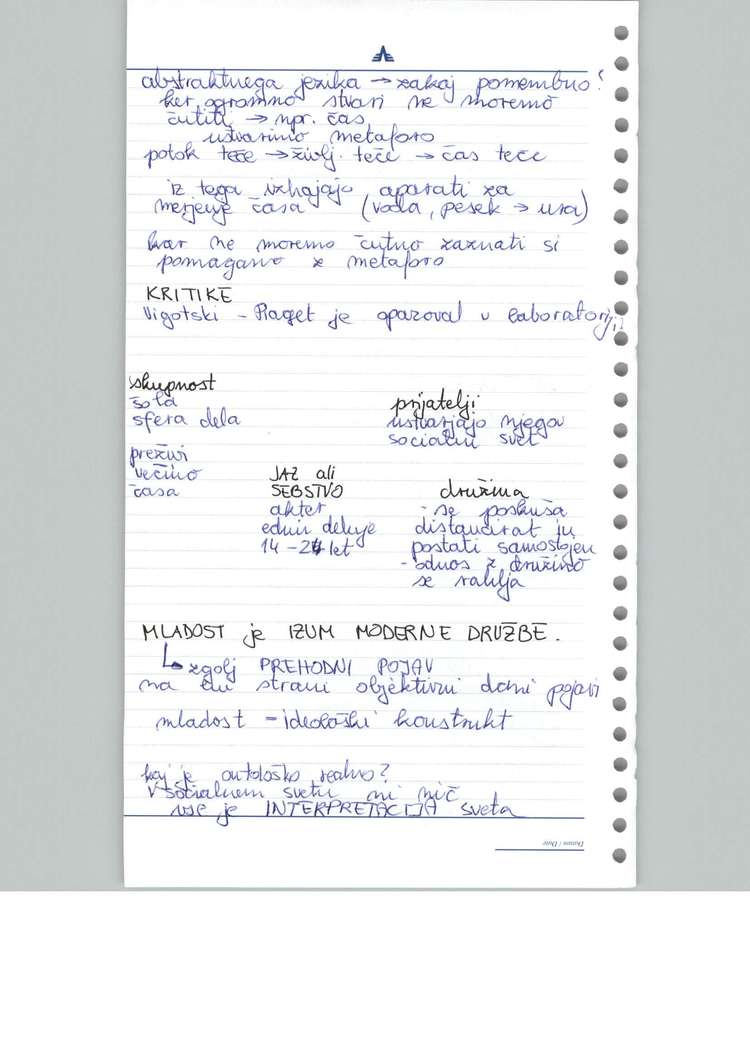 abstraktnega jezika → zakaj pomembno?
ker ogromno stvari ne moremo
čutiti → npr. čas
ustvarimo metaforo
potok teče → življ. teče → čas teče
iz tega izhajajo aparati za
merjenje časa (voda, pesek → ura)
kar ne moremo čutno zaznati si
pomagamo z metaforo
KRITIKE
Vigotski - Piaget je opazoval v laboratoriju
skupnost
šola
sfera dela
preživi
večino
časa
prijatelji
ustvarjajo njegov
socialni svet
JAZ ali
SEBSTVO
akter
edini deluje
14 - 24 let
družina
- se poskuša
distancirat in
postati samostojen
- odnos z družino
se rahlja
MLADOST je IZUM MODERNE DRUŽBE.
↳ zgolj PREHODNI POJAV
na eni strani objektivni dani pojavi
mladost - ideološki konstrukt
kaj je ontološko realno?
v socialnem svetu ni nič
vse je INTERPRETACIJA sveta
Datum / Date